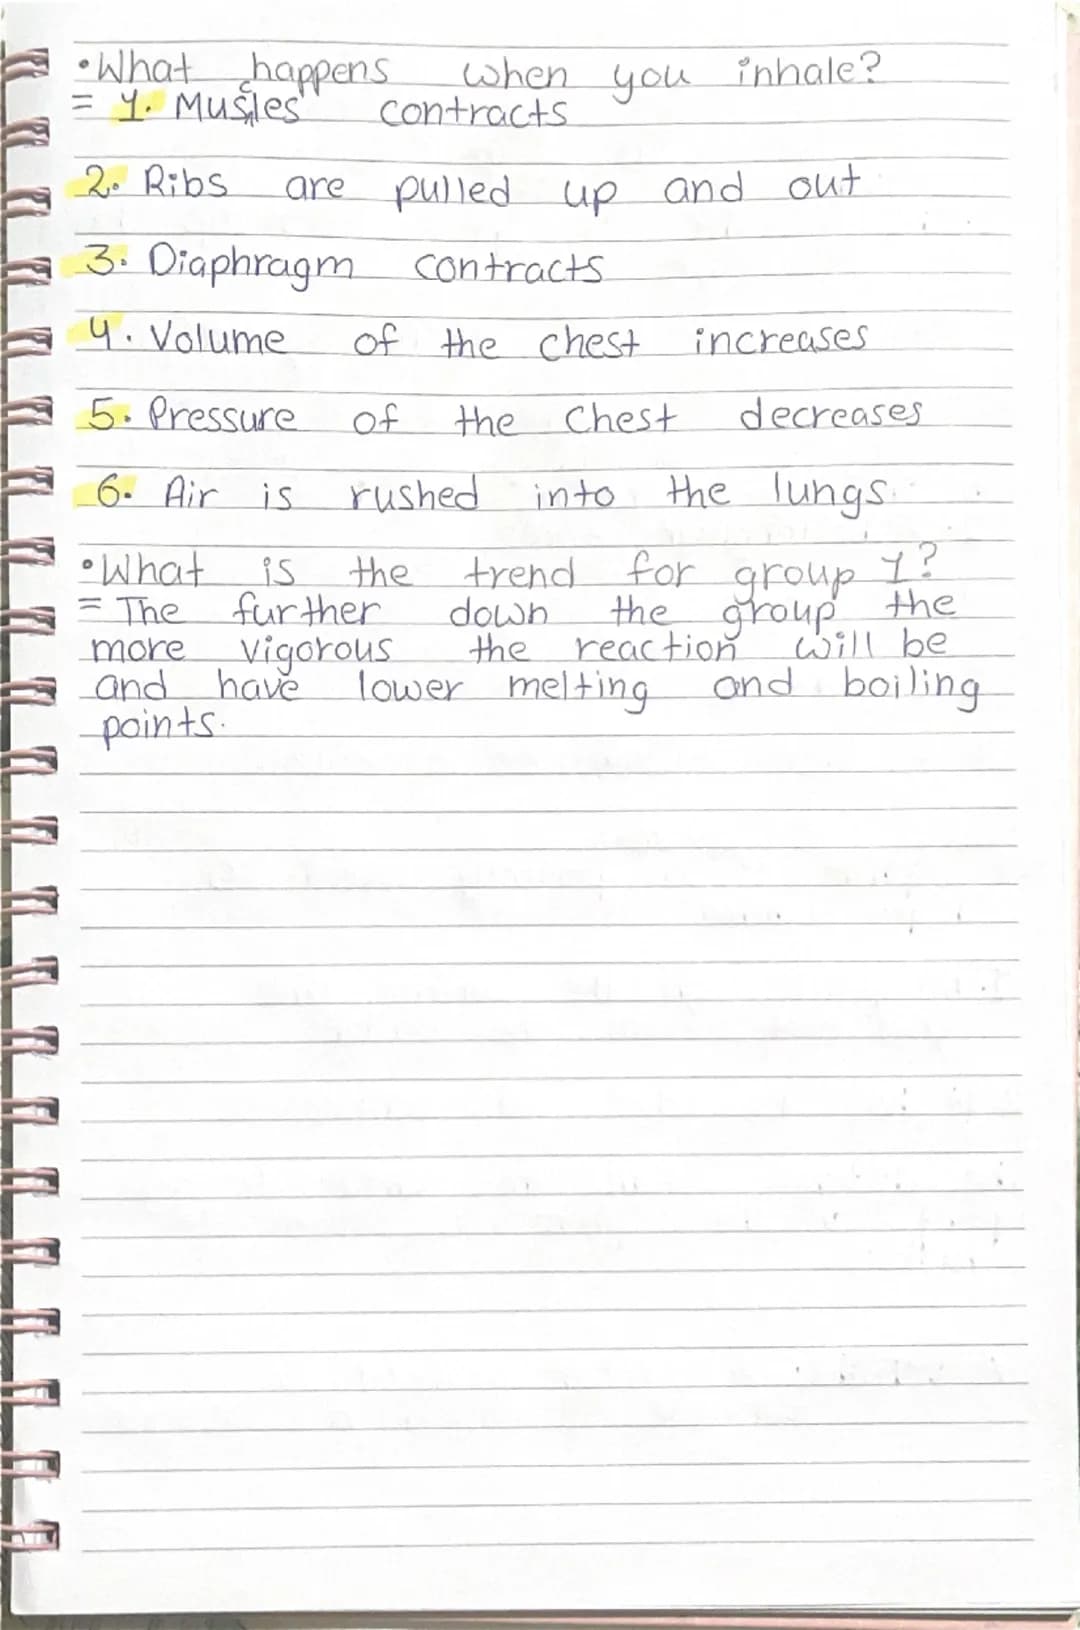 •What happens when you inhale?
= 1. Muscles contracts
2. Ribs are pulled up and out
3. Diaphragm contracts
4. Volume of the chest increases
5. Pressure of the Chest decreases
6. Air is rushed into the lungs.
•What is the trend for group 1?
= The further down the group the
more vigorous the reaction will be
and have lower melting and boiling
points.